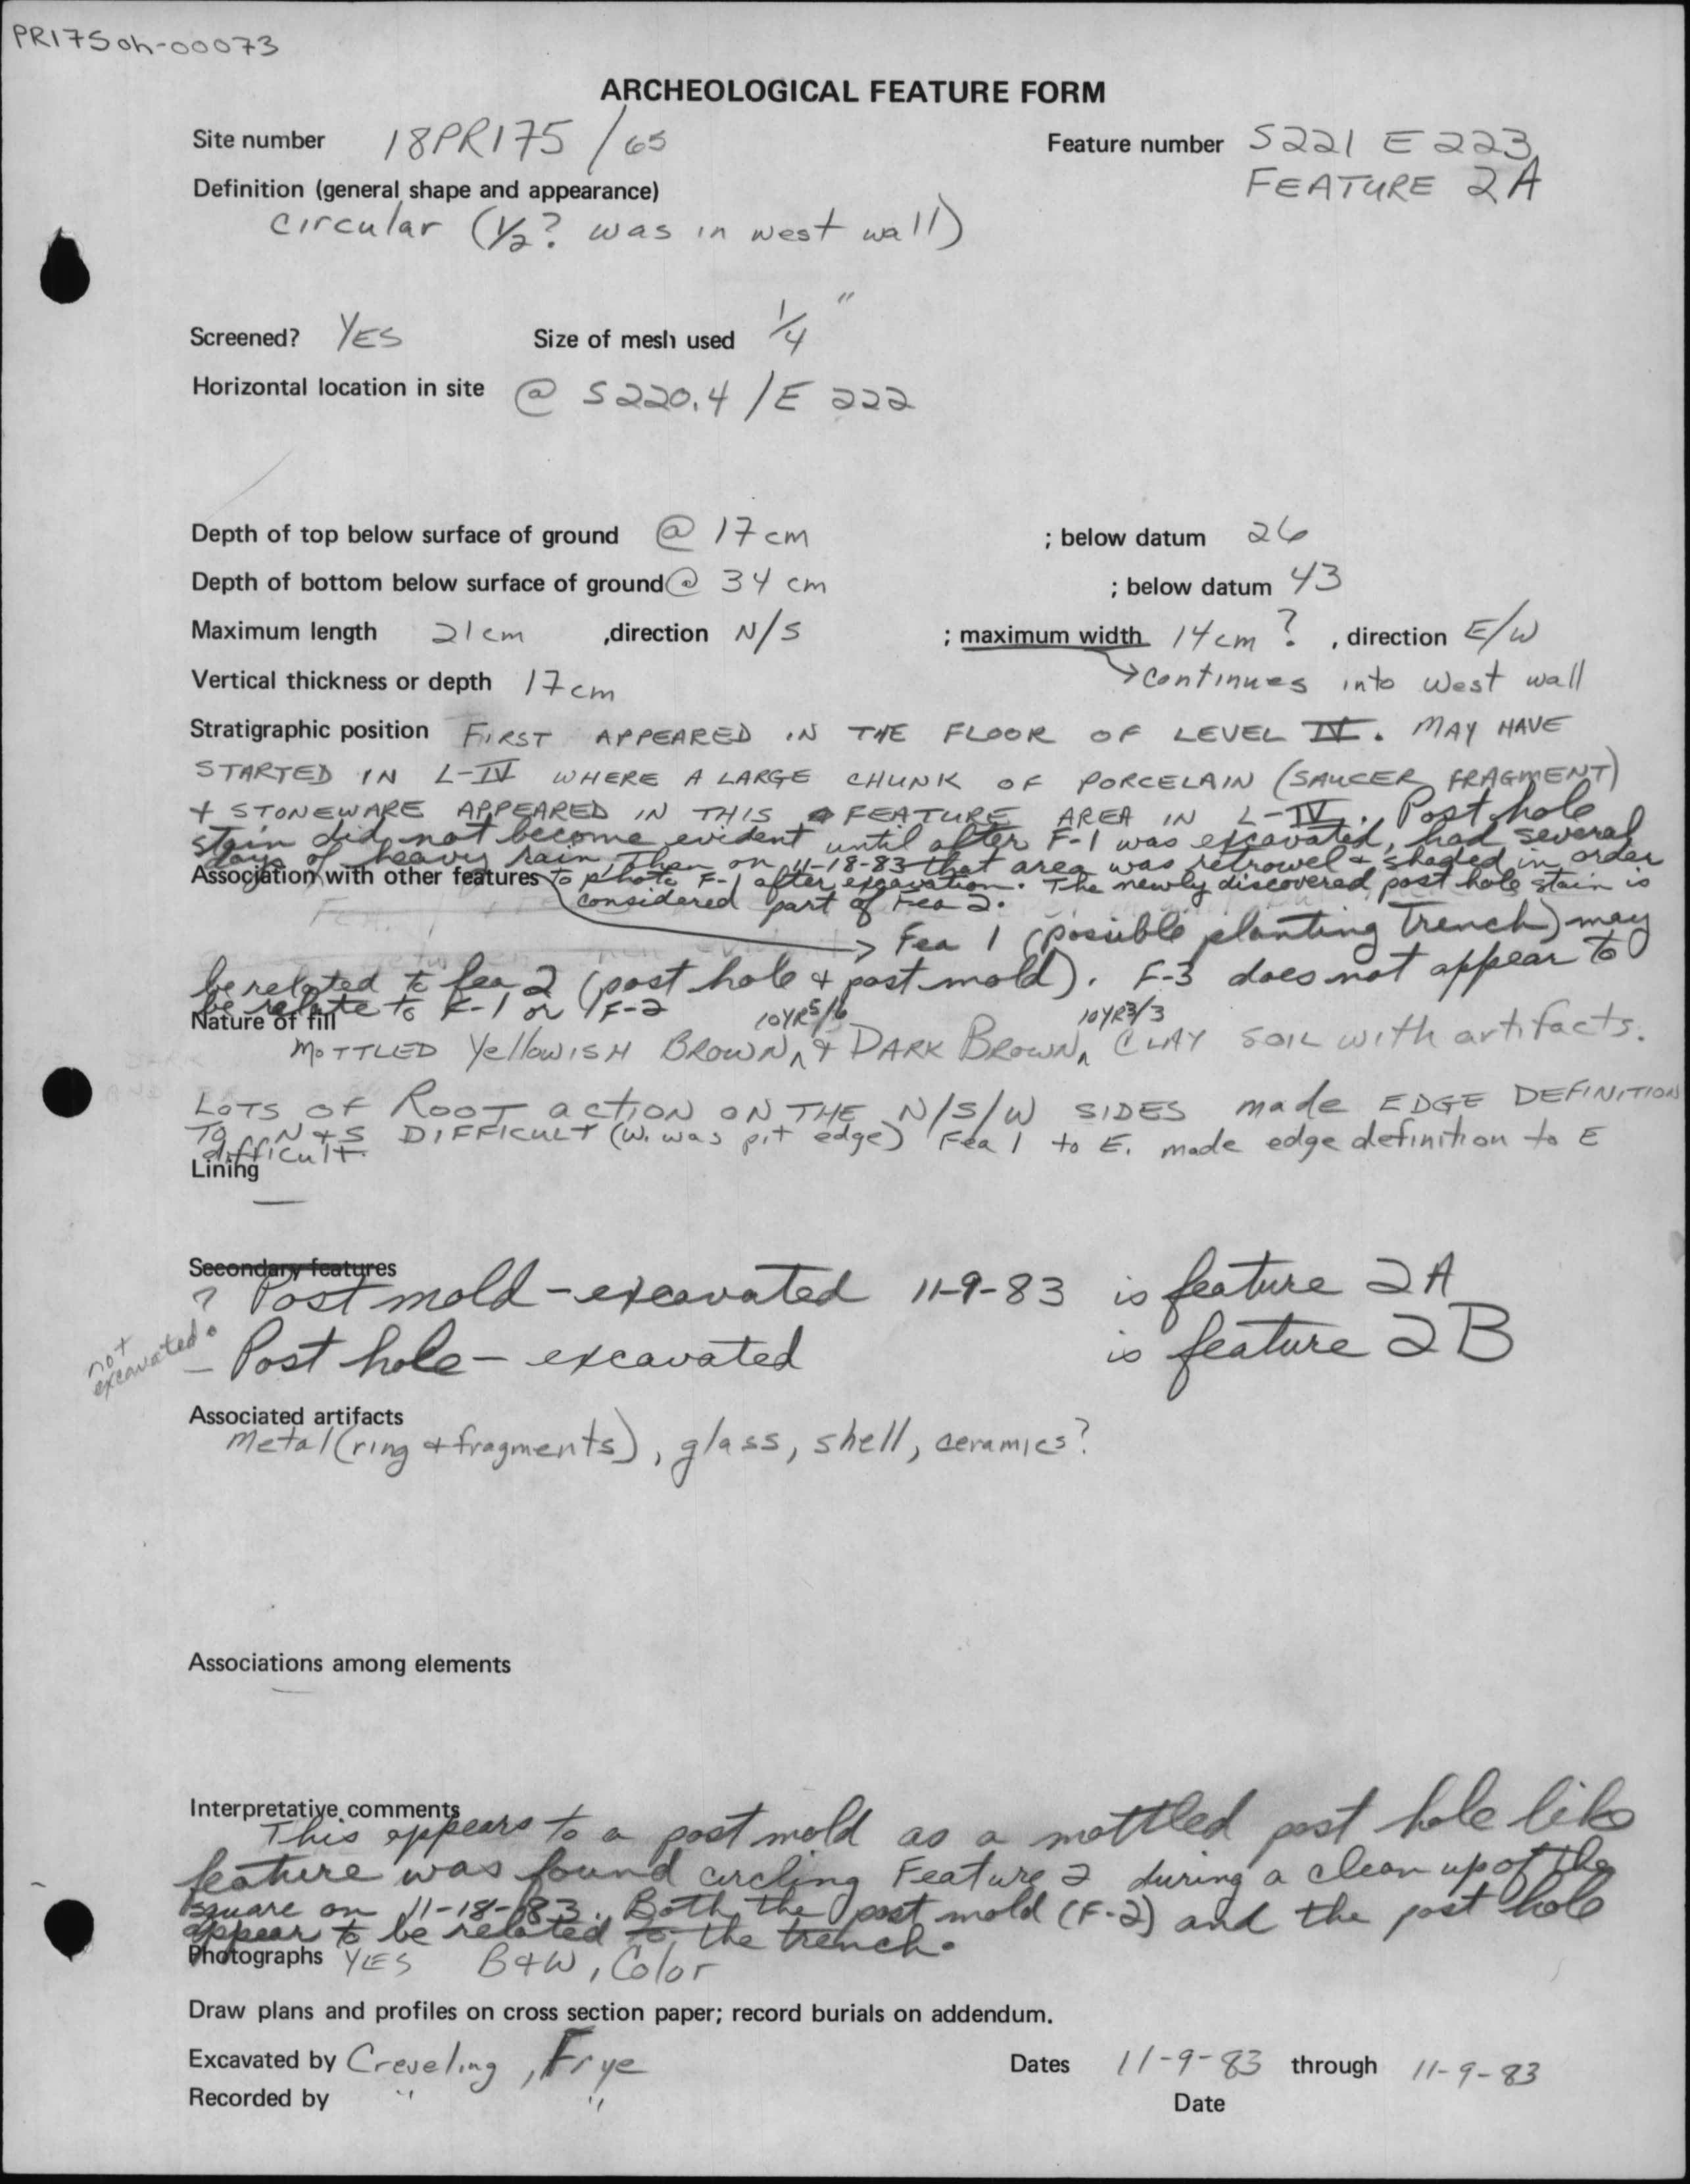 PR175oh-00073
ARCHEOLOGICAL FEATURE FORM
Site number 18PR175 / 65 Feature number S221 E223
FEATURE 2A
Definition (general shape and appearance)
circular (1/2? was in west wall)
Screened? YES Size of mesh used 1/4"
Horizontal location in site @ S220.4 / E 222
Depth of top below surface of ground @ 17 cm ; below datum 26
Depth of bottom below surface of ground @ 34 cm ; below datum 43
Maximum length 21cm ,direction N/S ; maximum width 14cm ? , direction E/W
→ continues into west wall
Vertical thickness or depth 17cm
Stratigraphic position FIRST APPEARED IN THE FLOOR OF LEVEL IV. MAY HAVE
STARTED IN L-IV WHERE A LARGE CHUNK OF PORCELAIN (SAUCER FRAGMENT)
+ STONEWARE APPEARED IN THIS FEATURE AREA IN L-IV. Post hole
stain did not become evident until after F-1 was excavated, had several
days of heavy rain, then on 11-18-83 that area was retrowel + shaded in order
Association with other features to photo F-1 after excavation. The newly discovered post hole stain is
considered part of Fea 2.
→ Fea 1 (possible planting trench) may
be related to fea 2 (post hole + post mold). F-3 does not appear to
be relate to F-1 or F-2
Nature of fill 10YR5/6 10YR3/3
MOTTLED YellowISH BROWN ^ + DARK BROWN ^ CLAY SOIL with artifacts.
LOTS OF ROOT action ON THE N/S/W SIDES made EDGE DEFINITION
TO N+S DIFFICULT (W. was pit edge) Fea 1 to E. made edge definition to E
difficult.
Lining
—
Secondary features
? Post mold - excavated 11-9-83 is feature 2A
not excavated.
- Post hole - excavated is feature 2B
Associated artifacts
Metal (ring + fragments), glass, shell, ceramics?
Associations among elements
—
Interpretative comments
This appears to a post mold as a mottled post hole like
feature was found circling Feature 2 during a clean up of the
square on 11-18-83. Both the post mold (F-2) and the post hole
appear to be related to the trench.
Photographs YES B+W, Color
Draw plans and profiles on cross section paper; record burials on addendum.
Excavated by Creveling, Frye Dates 11-9-83 through 11-9-83
Recorded by " " Date